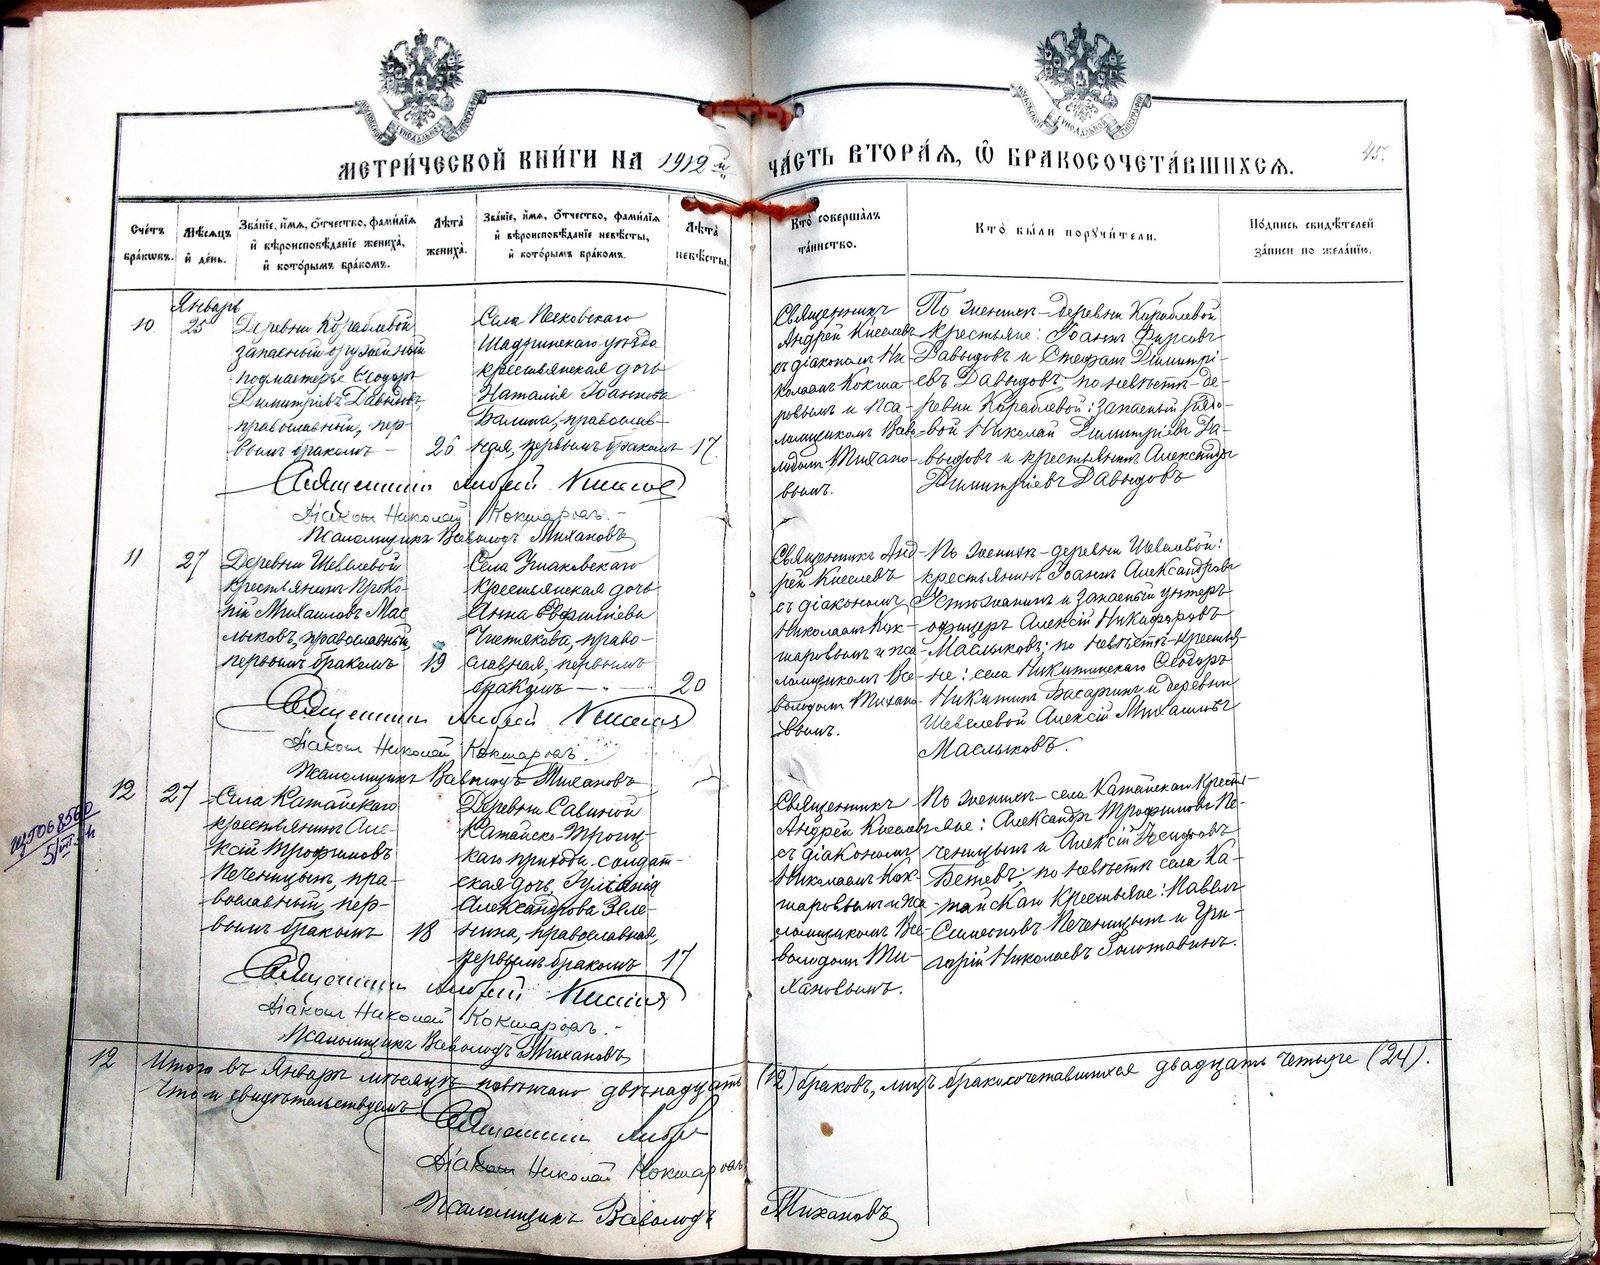 МЕТРИ́ЧЕСКОЙ КНИ́ГИ НА 1912 й
ЧА́СТЬ ВТОРА́Ѧ, Ѡ҆ БРАКОСОЧЕТА́ВШИХСѦ.
45.
Сче́тъ бра́кѡвъ.
Мѣ́сѧцъ и҆ де́нь.
Зва́нїе, и҆́мѧ, о҆́тчество, фами́лїѧ и҆ вѣроисповѣ́данїе жениха̀, и҆ кото́рымъ бра́комъ.
Лѣ́та жениха̀.
Зва́нїе, и҆́мѧ, о҆́тчество, фами́лїѧ и҆ вѣроисповѣ́данїе невѣ́сты, и҆ кото́рымъ бра́комъ.
Лѣ́та невѣ́сты.
Кто̀ соверша́лъ та́инство.
Кто̀ бы́ли порꙋчи́тели.
По́дпись свидѣ́телей за́писи по жела́нїю.
Январь
10
25
Деревни Кораблевой
запасный оружейный
подмастерье Ѳеодоръ
Димитріевъ Давыдовъ,
православный, пер-
вымъ бракомъ
26
Села Песковскаго
Шадринскаго уѣзда
крестьянская дочь
Наталія Іоаннова
Балина, православ-
ная, первымъ бракомъ
17.
Священникъ
Андрей Киселевъ
съ діакономъ Ни-
колаемъ Кокша-
ровымъ и пса-
ломщикомъ Все-
володомъ Тихано-
вымъ.
По женихѣ - деревни Кораблевой
крестьяне: Іоаннъ Фирсовъ
Давыдовъ и Стефанъ Димитрі-
евъ Давыдовъ, по невѣстѣ - де-
ревни Кораблевой: запасный рядо-
вой Николай Димитріевъ Да-
выдовъ и крестьянинъ Александръ
Димитріевъ Давыдовъ
Священникъ Андрей Киселевъ
Діаконъ Николай Кокшаровъ.
Псаломщикъ Всеволодъ Тихановъ
11
27
Деревни Шевелевой
крестьянинъ Проко-
пій Михаиловъ Мас-
лыковъ, православный,
первымъ бракомъ
19
Села Ушаковскаго
крестьянская дочь
Анна Евфиміева
Чистякова, право-
славная, первымъ
бракомъ
20
Священникъ Анд-
рей Киселевъ
съ діакономъ
Николаемъ Кок-
шаровымъ и пса-
ломщикомъ Все-
володомъ Тихано-
вымъ.
По женихѣ - деревни Шевелевой:
крестьянинъ Іоаннъ Александровъ
Устюжанинъ и запасный унтеръ
офицеръ Алексій Никифоровъ
Маслыковъ; по невѣстѣ - крестья-
не: села Никитинскаго Ѳеодоръ
Никитинъ Басаргинъ и деревни
Шевелевой Алексій Михаиловъ
Маслыковъ.
Священникъ Андрей Киселевъ
Діаконъ Николай Кокшаровъ.
Псаломщикъ Всеволодъ Тихановъ
12
27
Села Катайскаго
крестьянинъ Але-
ксій Трофимовъ
Печеницынъ, пра-
вославный, пер-
вымъ бракомъ
18
Деревни Савиной
Катайско-Троиц-
каго прихода солдат-
ская дочь, Іуліанія
Александрова Зеле-
нина, православная,
первымъ бракомъ
17
Священникъ
Андрей Киселевъ
съ діакономъ
Николаемъ Кок-
шаровымъ и пса-
ломщикомъ Все-
володомъ Ти-
хановымъ.
По женихѣ - села Катайскаго крестья-
не: Александръ Трофимовъ Пе-
ченицынъ и Алексій
по невѣстѣ села Ка-
тайскаго крестьяне: Павелъ
Симеоновъ Печеницынъ и Гри-
горій Николаевъ Золотавинъ.
Священникъ Андрей Киселевъ
Діаконъ Николай Кокшаровъ.
Псаломщикъ Всеволодъ Тихановъ
12 Итого въ Январѣ мѣсяцѣ повѣнчано двѣнадцать (12) браковъ, лицъ бракосочетавшихся двадцать четыре (24).
Что и свидѣтельствуемъ: Священникъ Андрей
Діаконъ Николай Кокшаровъ
Псаломщикъ Всеволодъ Тихановъ